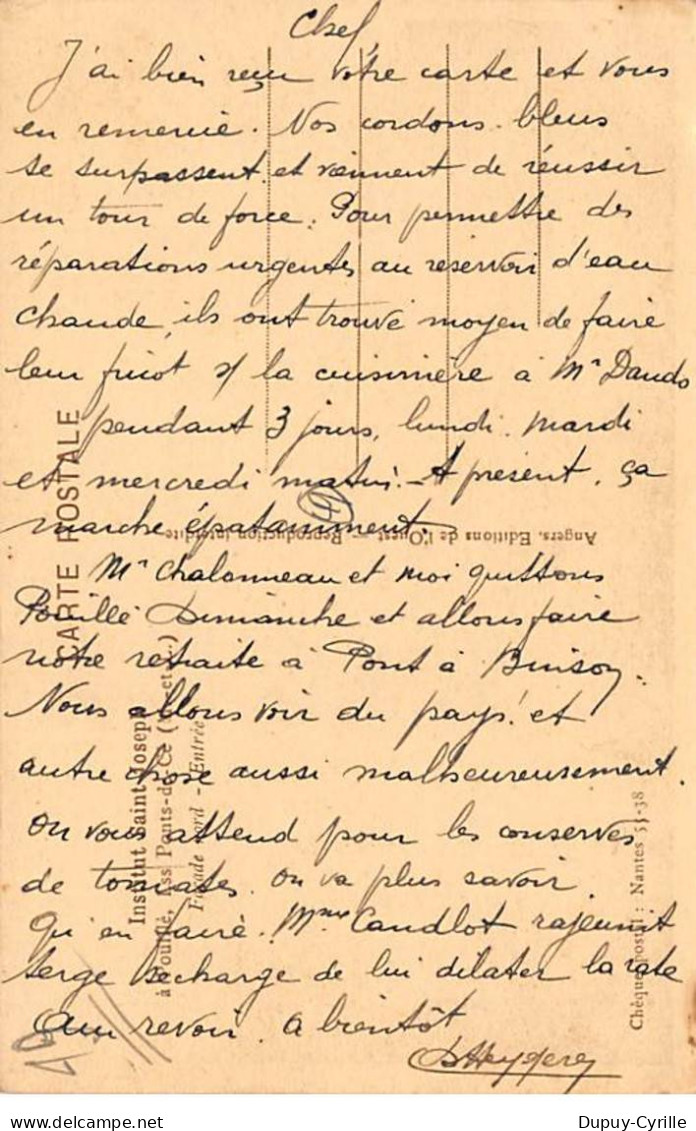 Chef
J'ai bien reçu votre carte et vous
en remercie. Nos cordons-bleus
se surpassent et viennent de réussir
un tour de force. Pour permettre des
réparations urgentes au réservoir d'eau
chaude, ils ont trouvé moyen de faire
leur fricot s/ la cuisinière à Mr
pendant 3 jours, lundi, mardi
et mercredi matin. - A présent, ça
marche épatamment.
Mr Chalonneau et moi quittons
Pouillé Dimanche et allons faire
notre retraite à Pont à Buisoy.
Nous allons voir du pays! et
autre chose aussi malheureusement.
On vous attend pour les conserves
de tomates. On va plus savoir
qui en faire. Mme Candlot rajeunit
Serge se charge de lui dilater la rate
Au revoir. à bientôt
CARTE POSTALE
Angers, Editions de l'Ouest — Reproduction interdite
Institut Saint-Joseph
à Pouillé, Les Ponts-de-Cé (M.-et-L.)
Façade Nord - Entrée
Chèque postal : Nantes 53-38
Dupuy-Cyrille